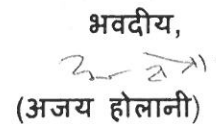 भवदीय,
(अजय होलानी)